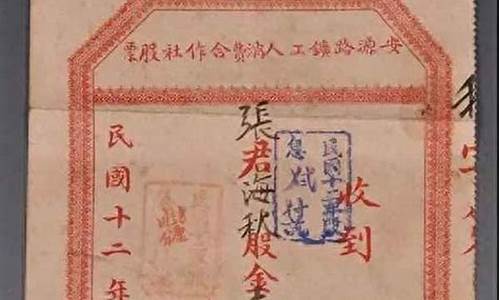 安源路鑛工人消費合作社股票
字第
收到
民國十二年
張君海秋股金
民國十二年